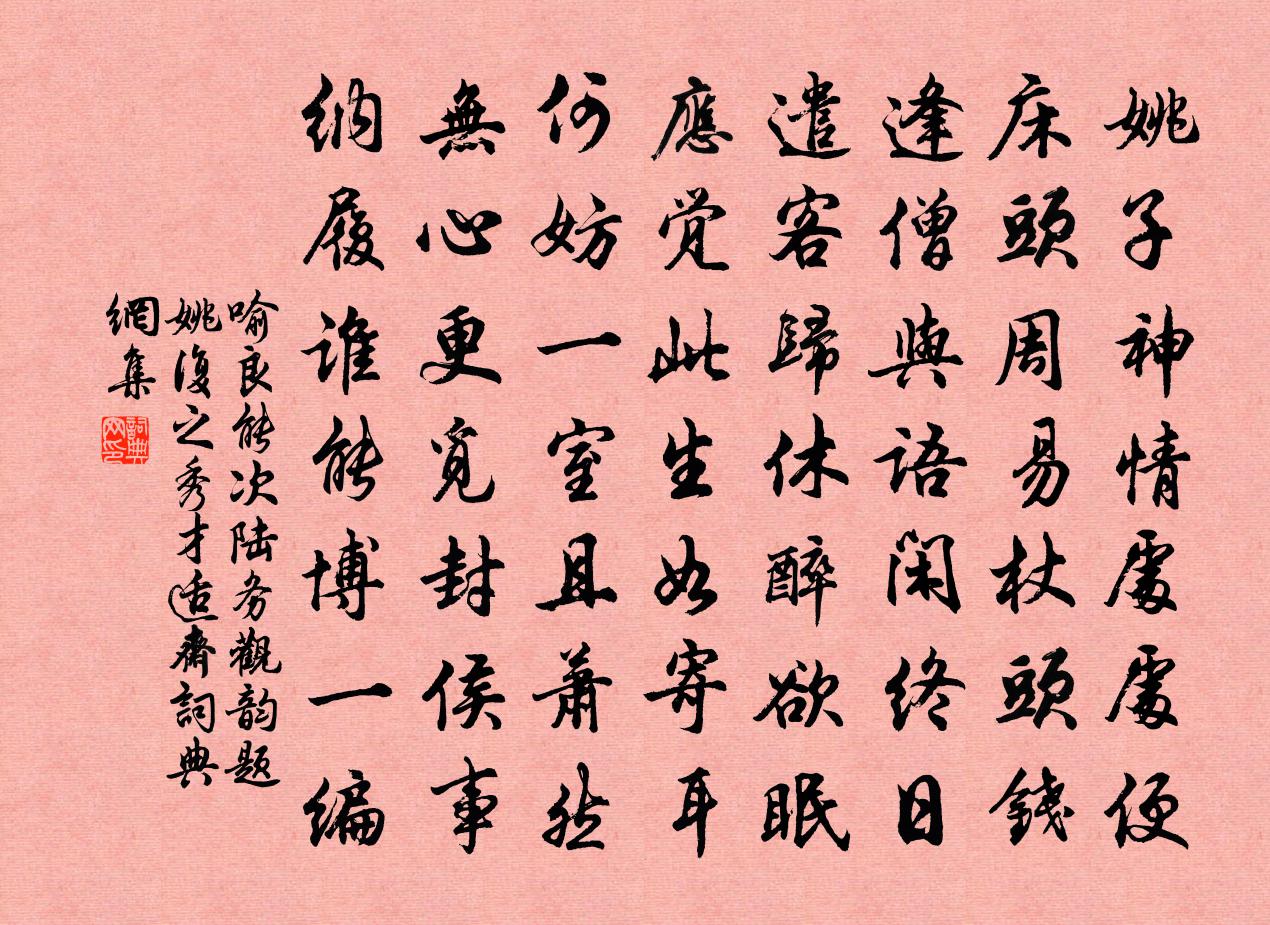 姚子神情處處便
床頭周易杖頭錢
逢僧與語閑終日
遣客歸休醉欲眠
應覚此生如寄耳
何妨一室且蕭然
無心更覓封侯事
納履誰能博一編
喻良能次陆务觀韵题
姚復之秀才适齋詞典
網集
詞典
网印